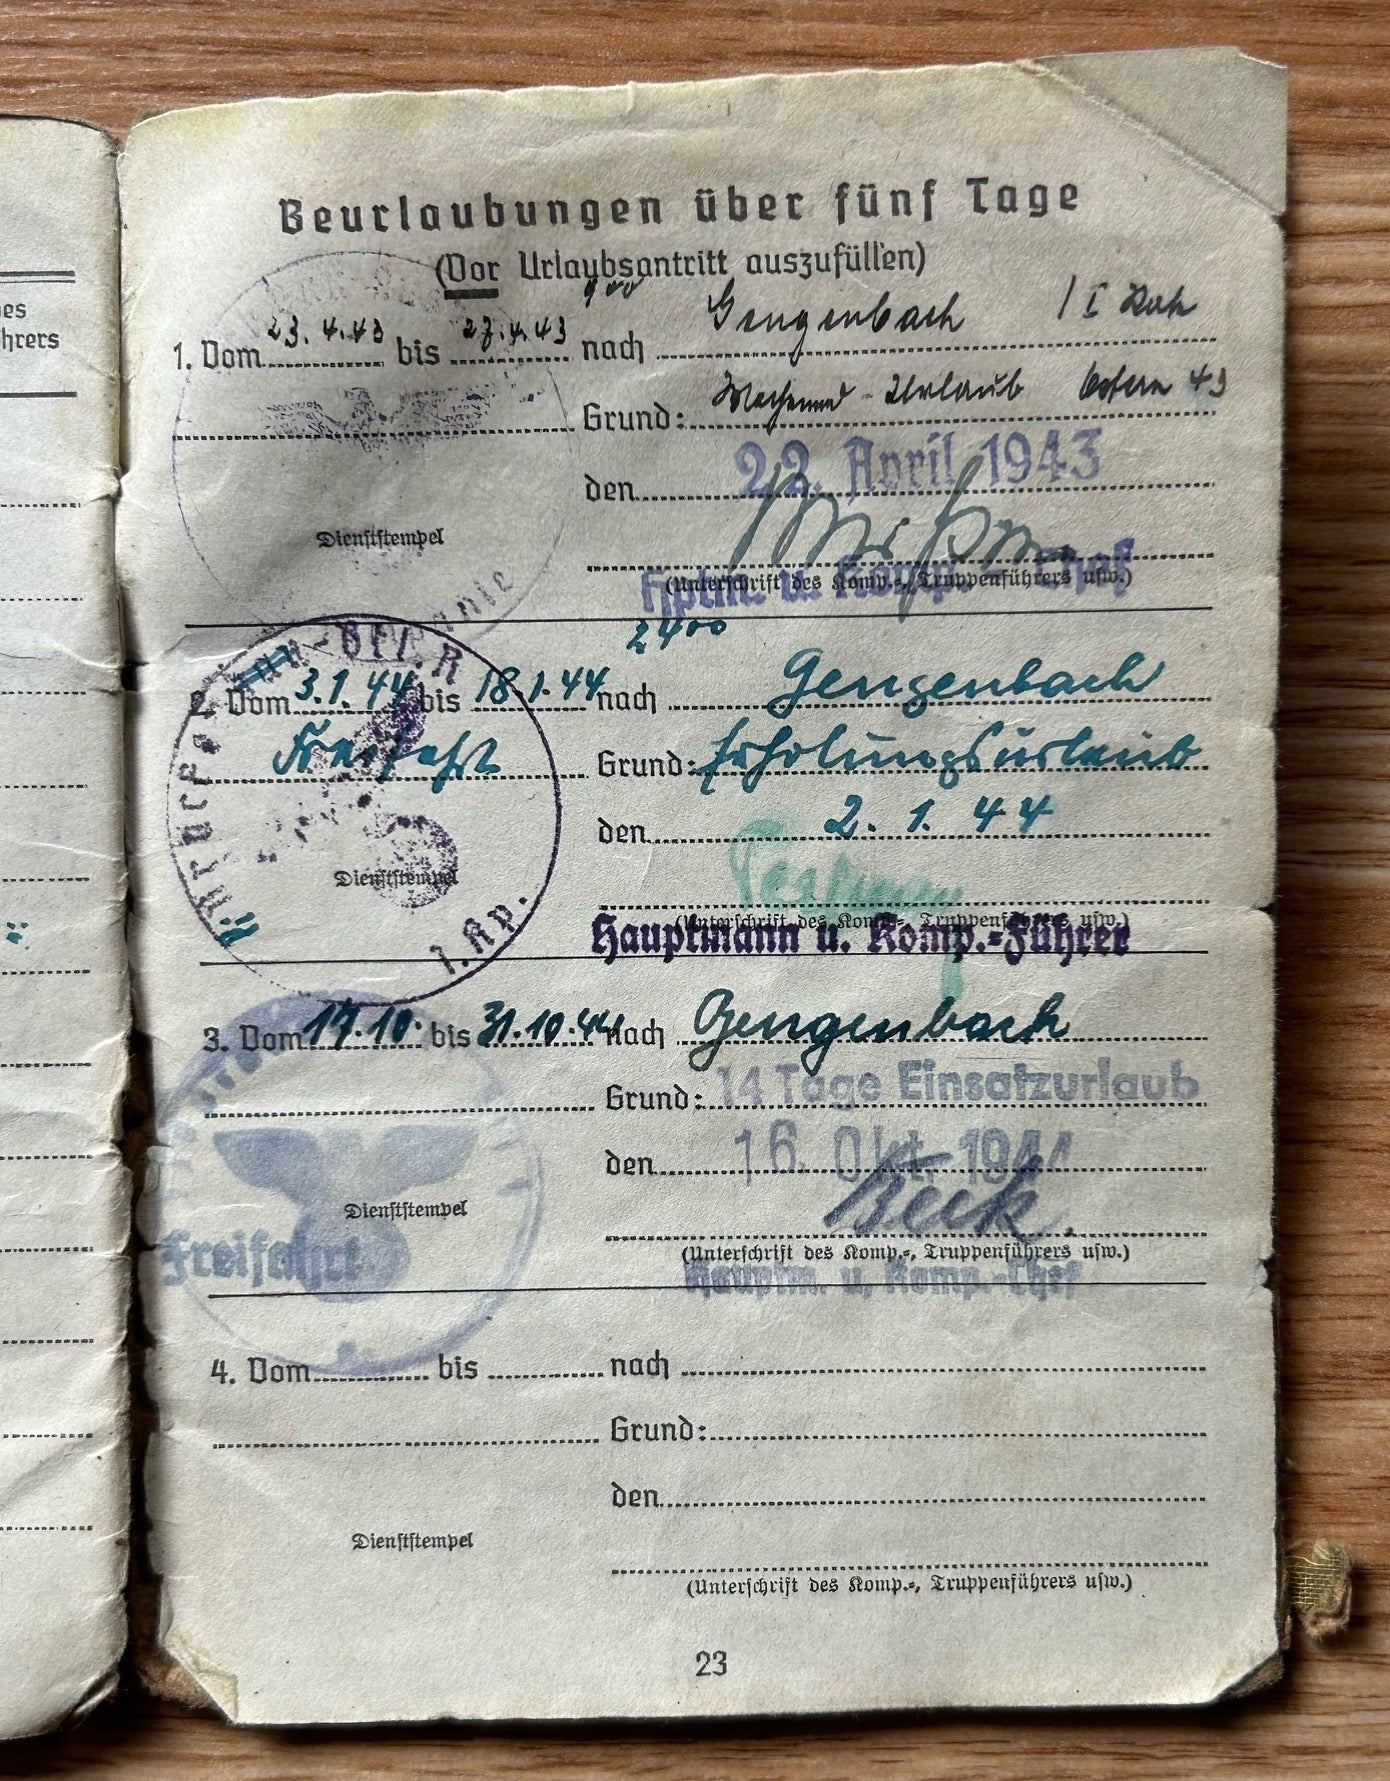 es
hrers
Beurlaubungen über fünf Tage
(Vor Urlaubsantritt auszufüllen)
9⁰⁰
1. Vom 23. 4. 43 bis 27. 4. 43 nach Gengenbach
Grund: Urlaub Ostern 43
den 22. April 1943
Dienststempel
(Unterschrift des Komp.-, Truppenführers usw.)
Hptm. u. Komp.-Chef
24⁰⁰
2. Vom 3. 1. 44 bis 18. 1. 44 nach Gengenbach
Freifahrt Grund: Erholungsurlaub
den 2. 1. 44
Dienststempel
(Unterschrift des Komp.-, Truppenführers usw.)
Hauptmann u. Komp.-Führer
1. Kp.
3. Vom 17. 10. bis 31. 10. 44 nach Gengenbach
Grund: 14 Tage Einsatzurlaub
den 16. Okt. 1944
Beck.
Dienststempel
(Unterschrift des Komp.-, Truppenführers usw.)
Freifahrt
Hauptm. u. Komp.-Chef
4. Vom bis nach
Grund:
den
Dienststempel
(Unterschrift des Komp.-, Truppenführers usw.)
23